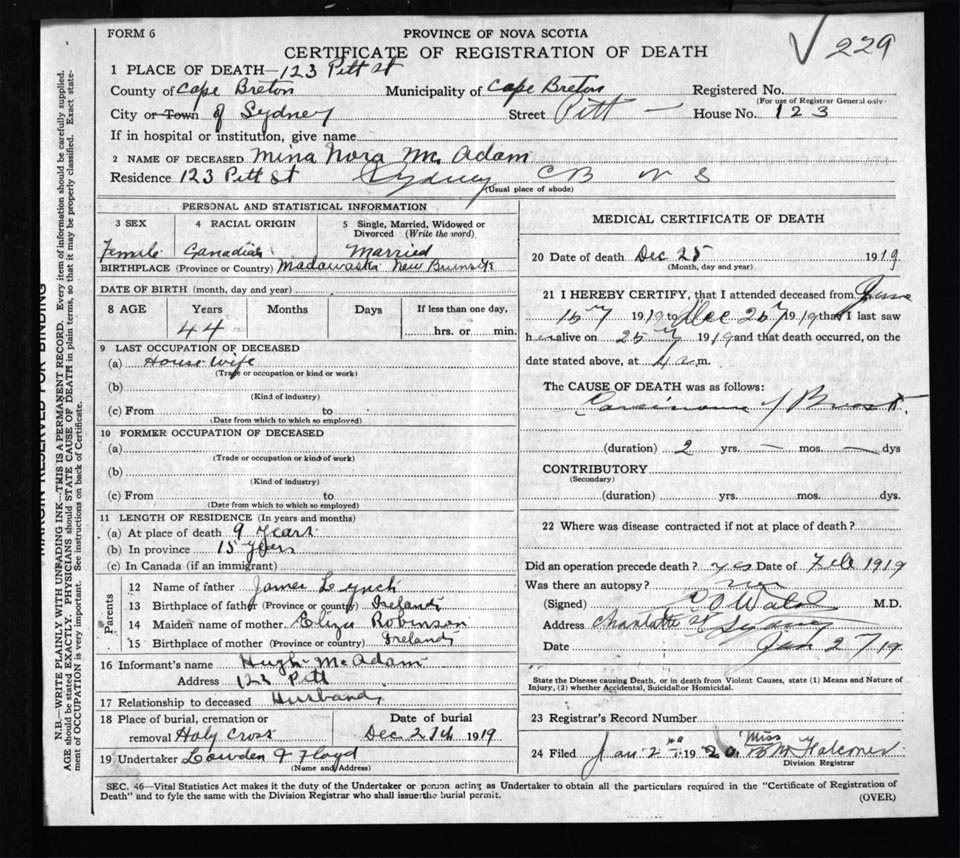 FORM 6
PROVINCE OF NOVA SCOTIA
229
CERTIFICATE OF REGISTRATION OF DEATH
1 PLACE OF DEATH—123 Pitt St
County of Cape Breton Municipality of Cape Breton Registered No.
(For use of Registrar General only)
City or Town of Sydney Street Pitt House No. 123
If in hospital or institution, give name
2 NAME OF DECEASED Mina Nora Mc Adam
Residence 123 Pitt St Sydney C B N S
(Usual place of abode)
PERSONAL AND STATISTICAL INFORMATION
3 SEX 4 RACIAL ORIGIN 5 Single, Married, Widowed or
Divorced (Write the word)
Female Canadian Married
BIRTHPLACE (Province or Country) Madawaska New Brunswk
DATE OF BIRTH (month, day and year)
8 AGE Years Months Days If less than one day,
44 hrs. or min.
9 LAST OCCUPATION OF DECEASED
(a) House wife
(Trade or occupation or kind or work)
(b)
(Kind of industry)
(c) From to
(Date from which to which so employed)
10 FORMER OCCUPATION OF DECEASED
(a)
(Trade or occupation or kind of work)
(b)
(Kind of industry)
(c) From to
(Date from which to which so employed)
11 LENGTH OF RESIDENCE (In years and months)
(a) At place of death 9 years
(b) In province 15 years
(c) In Canada (if an immigrant)
Parents
12 Name of father James Lynch
13 Birthplace of father (Province or country) Ireland
14 Maiden name of mother Eliza Robinson
15 Birthplace of mother (Province or country) Ireland
16 Informant's name Hugh McAdam
Address 123 Pitt
17 Relationship to deceased Husband
18 Place of burial, cremation or Date of burial
removal Holy Cross Dec 27th 1919
19 Undertaker Lowden & Floyd
(Name and Address)
MEDICAL CERTIFICATE OF DEATH
20 Date of death Dec 25 1919
(Month, day and year)
21 I HEREBY CERTIFY, that I attended deceased from June
15 1919 to Dec 25 1919 that I last saw
her alive on 25 1919 and that death occurred, on the
date stated above, at 4 a.m.
The CAUSE OF DEATH was as follows:
Carcinoma of Breast.
(duration) 2 yrs. — mos. — dys
CONTRIBUTORY
(Secondary)
(duration) yrs. mos. dys.
22 Where was disease contracted if not at place of death?
Did an operation precede death? yes Date of Feb 1919
Was there an autopsy?
(Signed) M.D.
Address Charlotte St Sydney
Date Jan 2 19
State the Disease causing Death, or in death from Violent Causes, state (1) Means and Nature of
Injury, (2) whether Accidental, Suicidal or Homicidal.
23 Registrar's Record Number
24 Filed Jan 2 1920. Miss B M Falconer
Division Registrar
SEC. 46—Vital Statistics Act makes it the duty of the Undertaker or person acting as Undertaker to obtain all the particulars required in the "Certificate of Registration of
Death" and to fyle the same with the Division Registrar who shall issue the burial permit.
(OVER)
MARGIN RESERVED FOR BINDING
N.B.—WRITE PLAINLY, WITH UNFADING INK—THIS IS A PERMANENT RECORD. Every item of information should be carefully supplied.
AGE should be stated EXACTLY. PHYSICIANS should STATE CAUSE OF DEATH in plain terms, so that it may be properly classified. Exact state-
ment of OCCUPATION is very important. See instructions on back of Certificate.